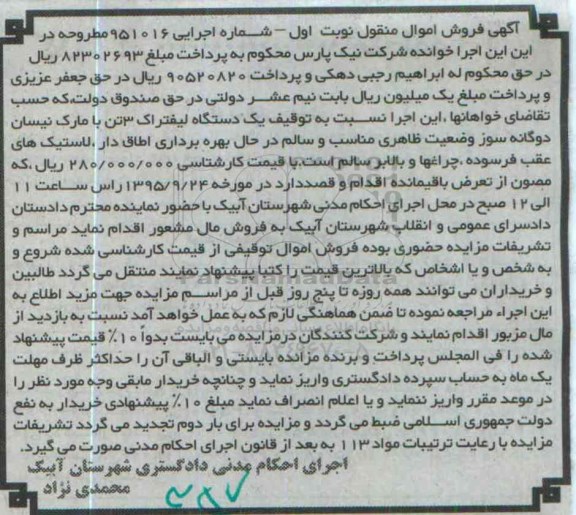 آگهی فروش اموال منقول نوبت اول – شماره اجرایی ۹۵۱۰۱۶ مطروحه در
این این اجرا خوانده شرکت نیک پارس محکوم به پرداخت مبلغ ۸۲۳۰۲۶۹۳ ریال
در حق محکوم له ابراهیم رجبی دهکی و پرداخت ۹۰۵۲۰۸۲۰ ریال در حق جعفر عزیزی
و پرداخت مبلغ یک میلیون ریال بابت نیم عشر دولتی در حق صندوق دولت،که حسب
تقاضای خواهانها ،این اجرا نسبت به توقیف یک دستگاه لیفتراک ۳تن با مارک نیسان
دوگانه سوز وضعیت ظاهری مناسب و سالم در حال بهره برداری اطاق دار ،لاستیک های
عقب فرسوده ،چراغها و بالابر سالم است،با قیمت کارشناسی ۲۸۰/۰۰۰/۰۰۰ ریال ،که
مصون از تعرض باقیمانده اقدام و قصددارد در مورخه ۱۳۹۵/۹/۲۴ راس ساعت ۱۱
الی ۱۲ صبح در محل اجرای احکام مدنی شهرستان آبیک با حضور نماینده محترم دادستان
دادسرای عمومی و انقلاب شهرستان آبیک به فروش مال مشعور اقدام نماید مراسم و
تشریفات مزایده حضوری بوده فروش اموال توقیفی از قیمت کارشناسی شده شروع و
به شخص و یا اشخاص که بالاترین قیمت را کتبا پیشنهاد نمایند منتقل می گردد طالبین
و خریداران می توانند همه روزه تا پنج روز قبل از مراسم مزایده جهت مزید اطلاع به
این اجراء مراجعه نموده تا ضمن هماهنگی لازم که به عمل خواهد آمد نسبت به بازدید از
مال مزبور اقدام نمایند و شرکت کنندگان درمزایده می بایست بدواً ۱۰٪ قیمت پیشنهاد
شده را فی المجلس پرداخت و برنده مزانده بایستی و الباقی آن را حداکثر ظرف مهلت
یک ماه به حساب سپرده دادگستری واریز نماید و چنانچه خریدار مابقی وجه مورد نظر را
در موعد مقرر واریز ننماید و یا اعلام انصراف نماید مبلغ ۱۰٪ پیشنهادی خریدار به نفع
دولت جمهوری اسلامی ضبط می گردد و مزایده برای بار دوم تجدید می گردد تشریفات
مزایده با رعایت ترتیبات مواد ۱۱۳ به بعد از قانون اجرای احکام مدنی صورت می گیرد.
اجرای احکام مدنی دادگستری شهرستان آبیک
محمدی نژاد